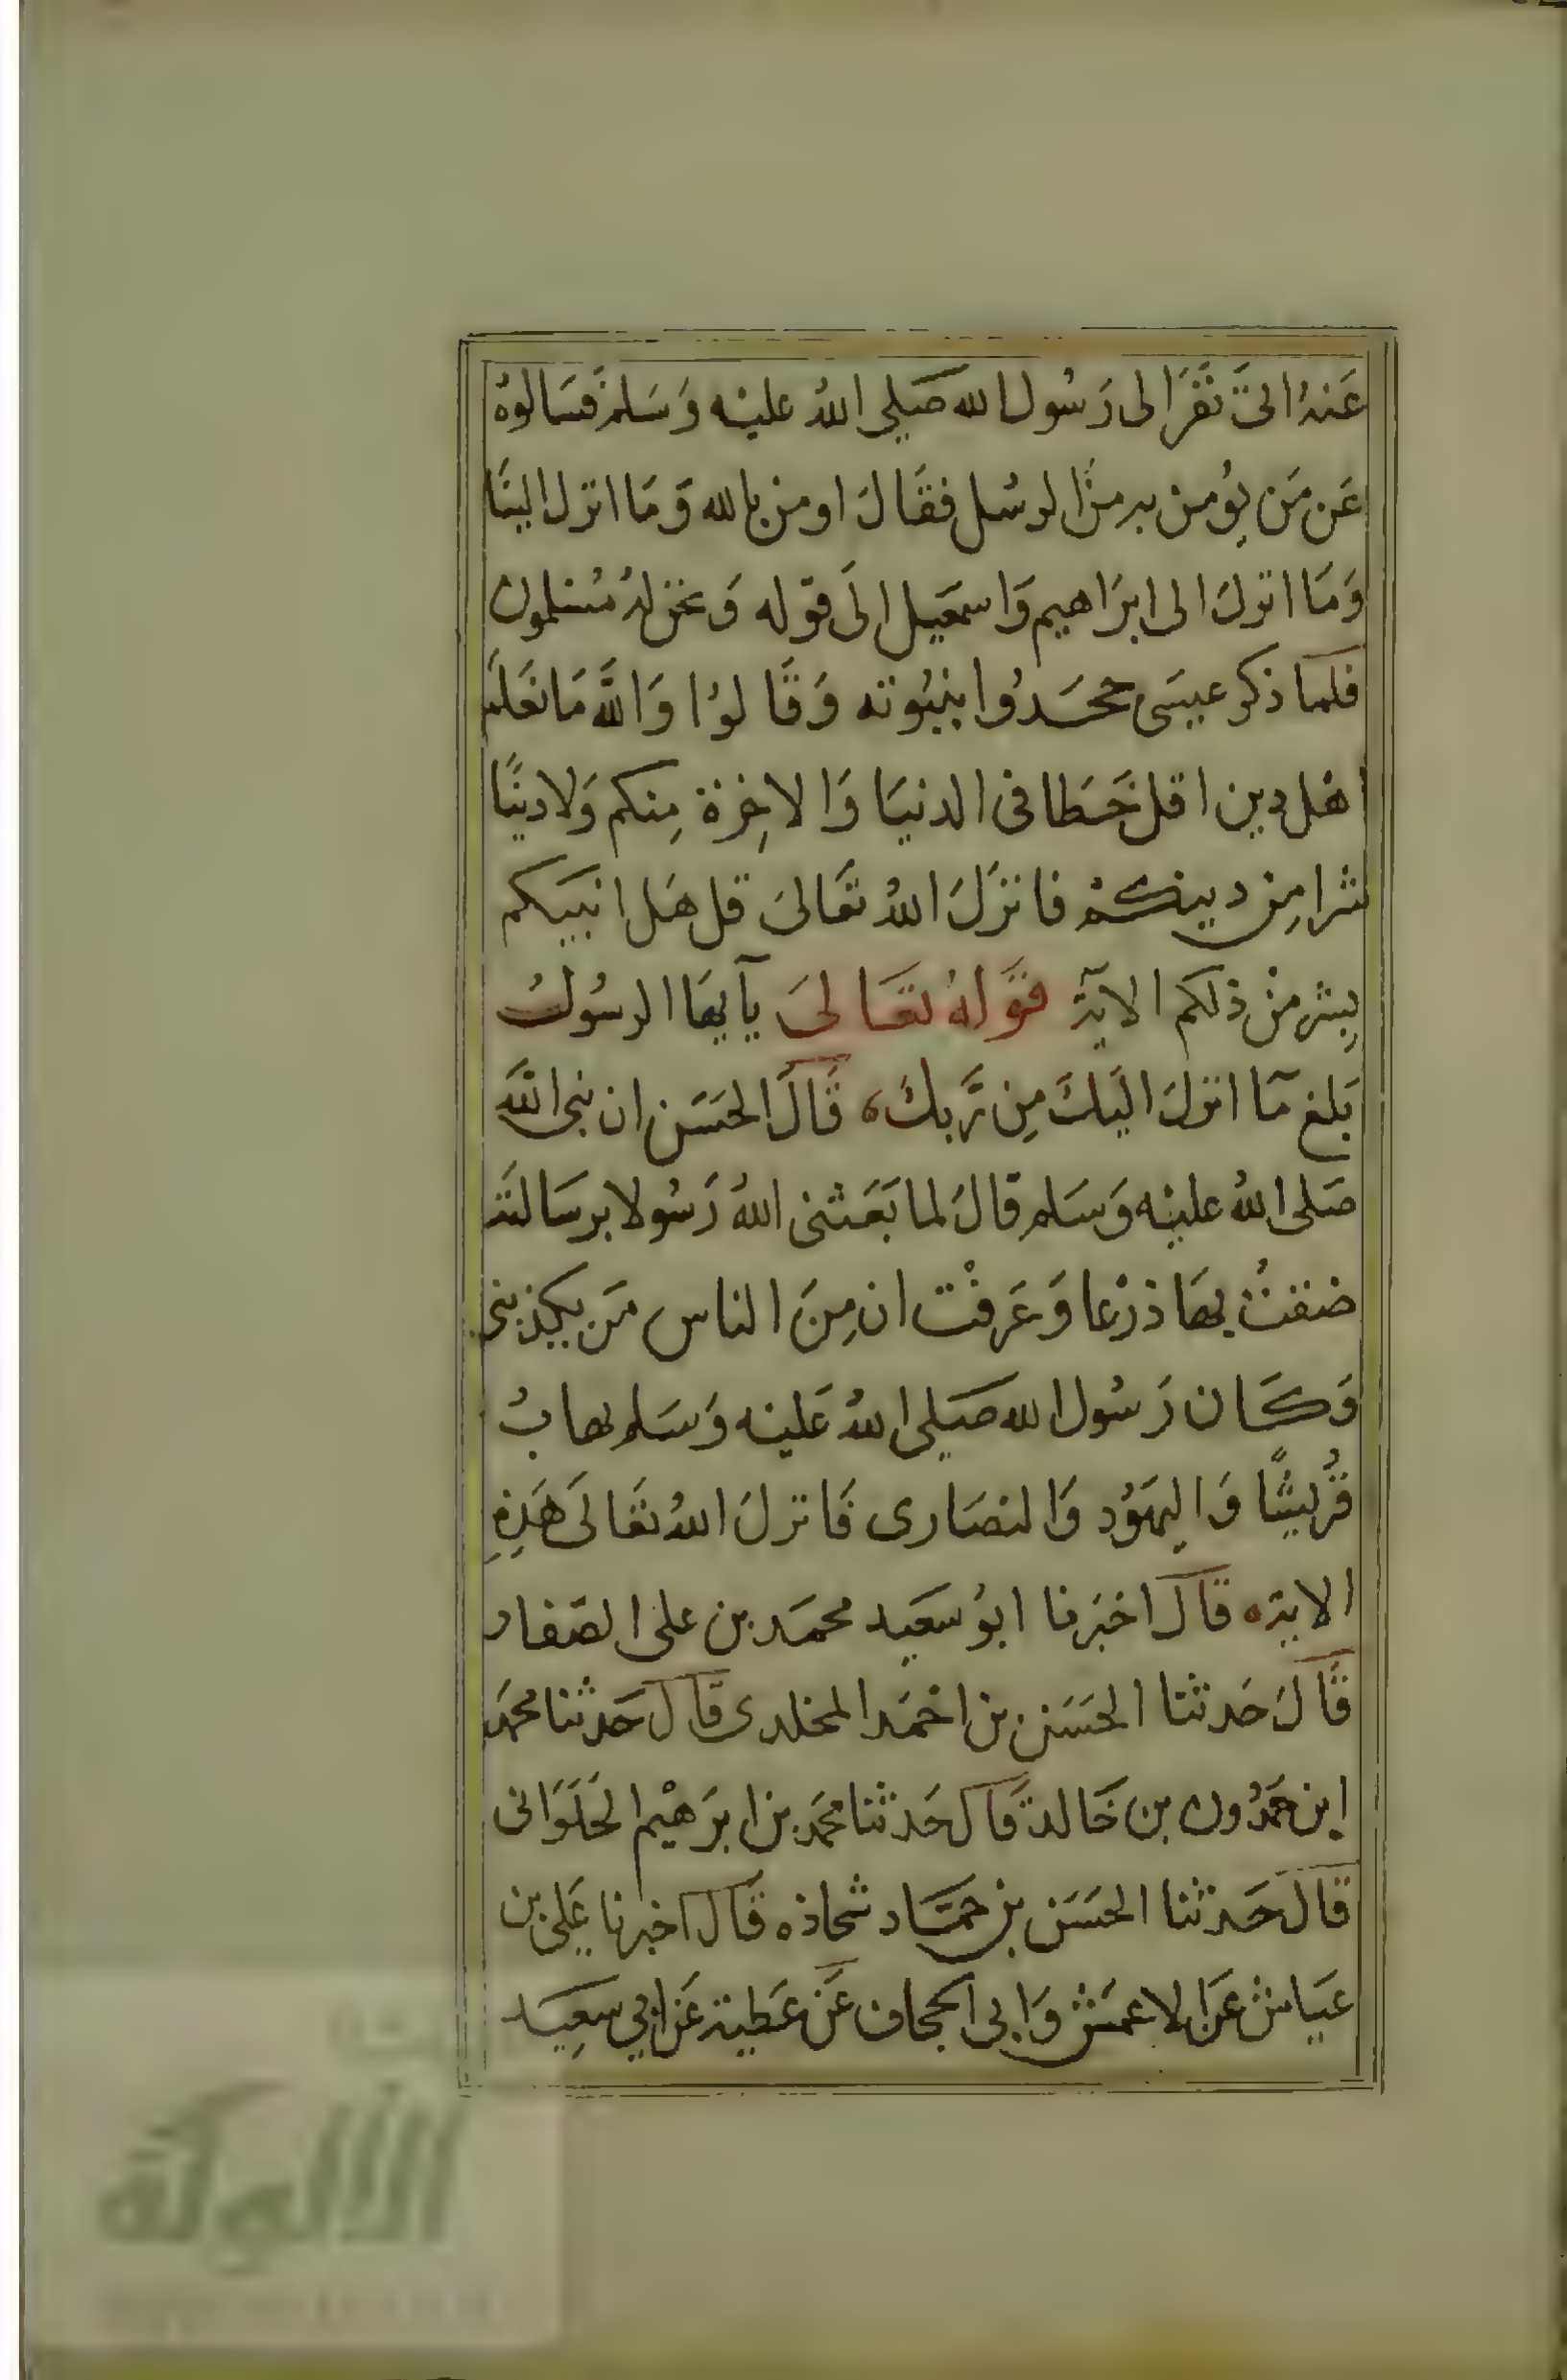 عَنهُ اتىَ نَفَرَ الى رَسُول الله صَلى اللهُ عليْه وَسَلم فَسَالوهُ
عَن مَن يُومن به منَ الرسُل فقَالَ اومن بالله وَمَا انزل الينَا
وَمَا انزلَ الى ابرَاهيم وَاسمَعيل الَى قوله وَنحن لهُ مُسْلمون
فلما ذكر عيسَى جحَدُوا بنبُوته وَقَالوُا وَاللهَ مَا نعَلم
اهْل دين اقل حَظا فى الدنيَا وَالاخِرَة مِنكم وَلا دينًا
شرا مِن دينكمْ فانزَلَ اللهُ تعَالىَ قل هَل انبيكم
بِشر منْ ذلكم الايَة قوَلهُ تعَالىَ يآيهَا الرسُولُ
بَلغ مَا انزلَ اليَكَ مِن رَّبكَ، قَالَ الحسَن ان نبى اللهَ
صَلى اللهُ عليْه وَسَلم قالَ لما بَعَثنى اللهُ رَسُولا برسَالته
ضقتُ بهَا ذرْعا وَعَرفْت ان مِنَ الناس مَن يكذبنى
وَكَان رَسُول الله صَلى اللهُ عَليْه وَسَلم يهابُ
قُريشًا وَاليهَوُد وَالنصَارى فَانزلَ اللهُ تعَالَى هَذِهِ
الاية، قالَ اخبَرنا ابوُ سعَيد محمَد بن على الصَفار
قَالَ حَدثنا الحسَن بن احْمَد المخلدى قَالَ حَدثنا محمَد
ابن حَمدُون بن خَالد قَالَ حَدثنا محمَد بن ابرَهْيم الحَلوَانى
قالَ حَدثنا الحسَن بن حمَّاد سجاده قَالَ اخبرنا عَلى بن
عيَاش عَن الاعمَش وَابى الجحاف عَن عَطية عَن ابي سعِيَد
الألوكة